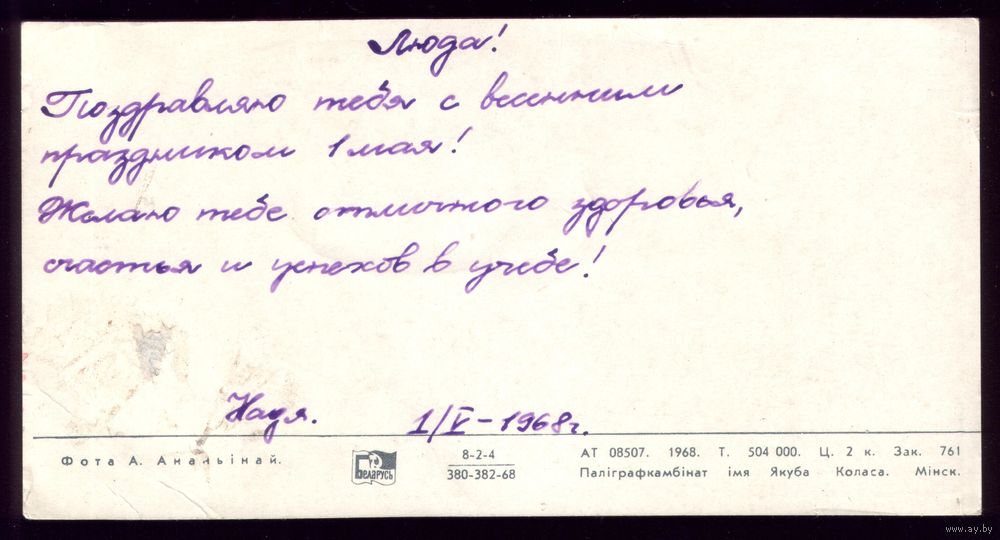 Люда!
Поздравляю тебя с весенним
праздником 1 мая!
Желаю тебе отличного здоровья,
счастья и успехов в учебе!
Надя. 1/V-1968г.
Фота А. Ананьінай.
БЕЛАРУСЬ
8-2-4
380-382-68
АТ 08507. 1968. Т. 504 000. Ц. 2 к. Зак. 761
Паліграфкамбінат імя Якуба Коласа. Мінск.
www.ay.by